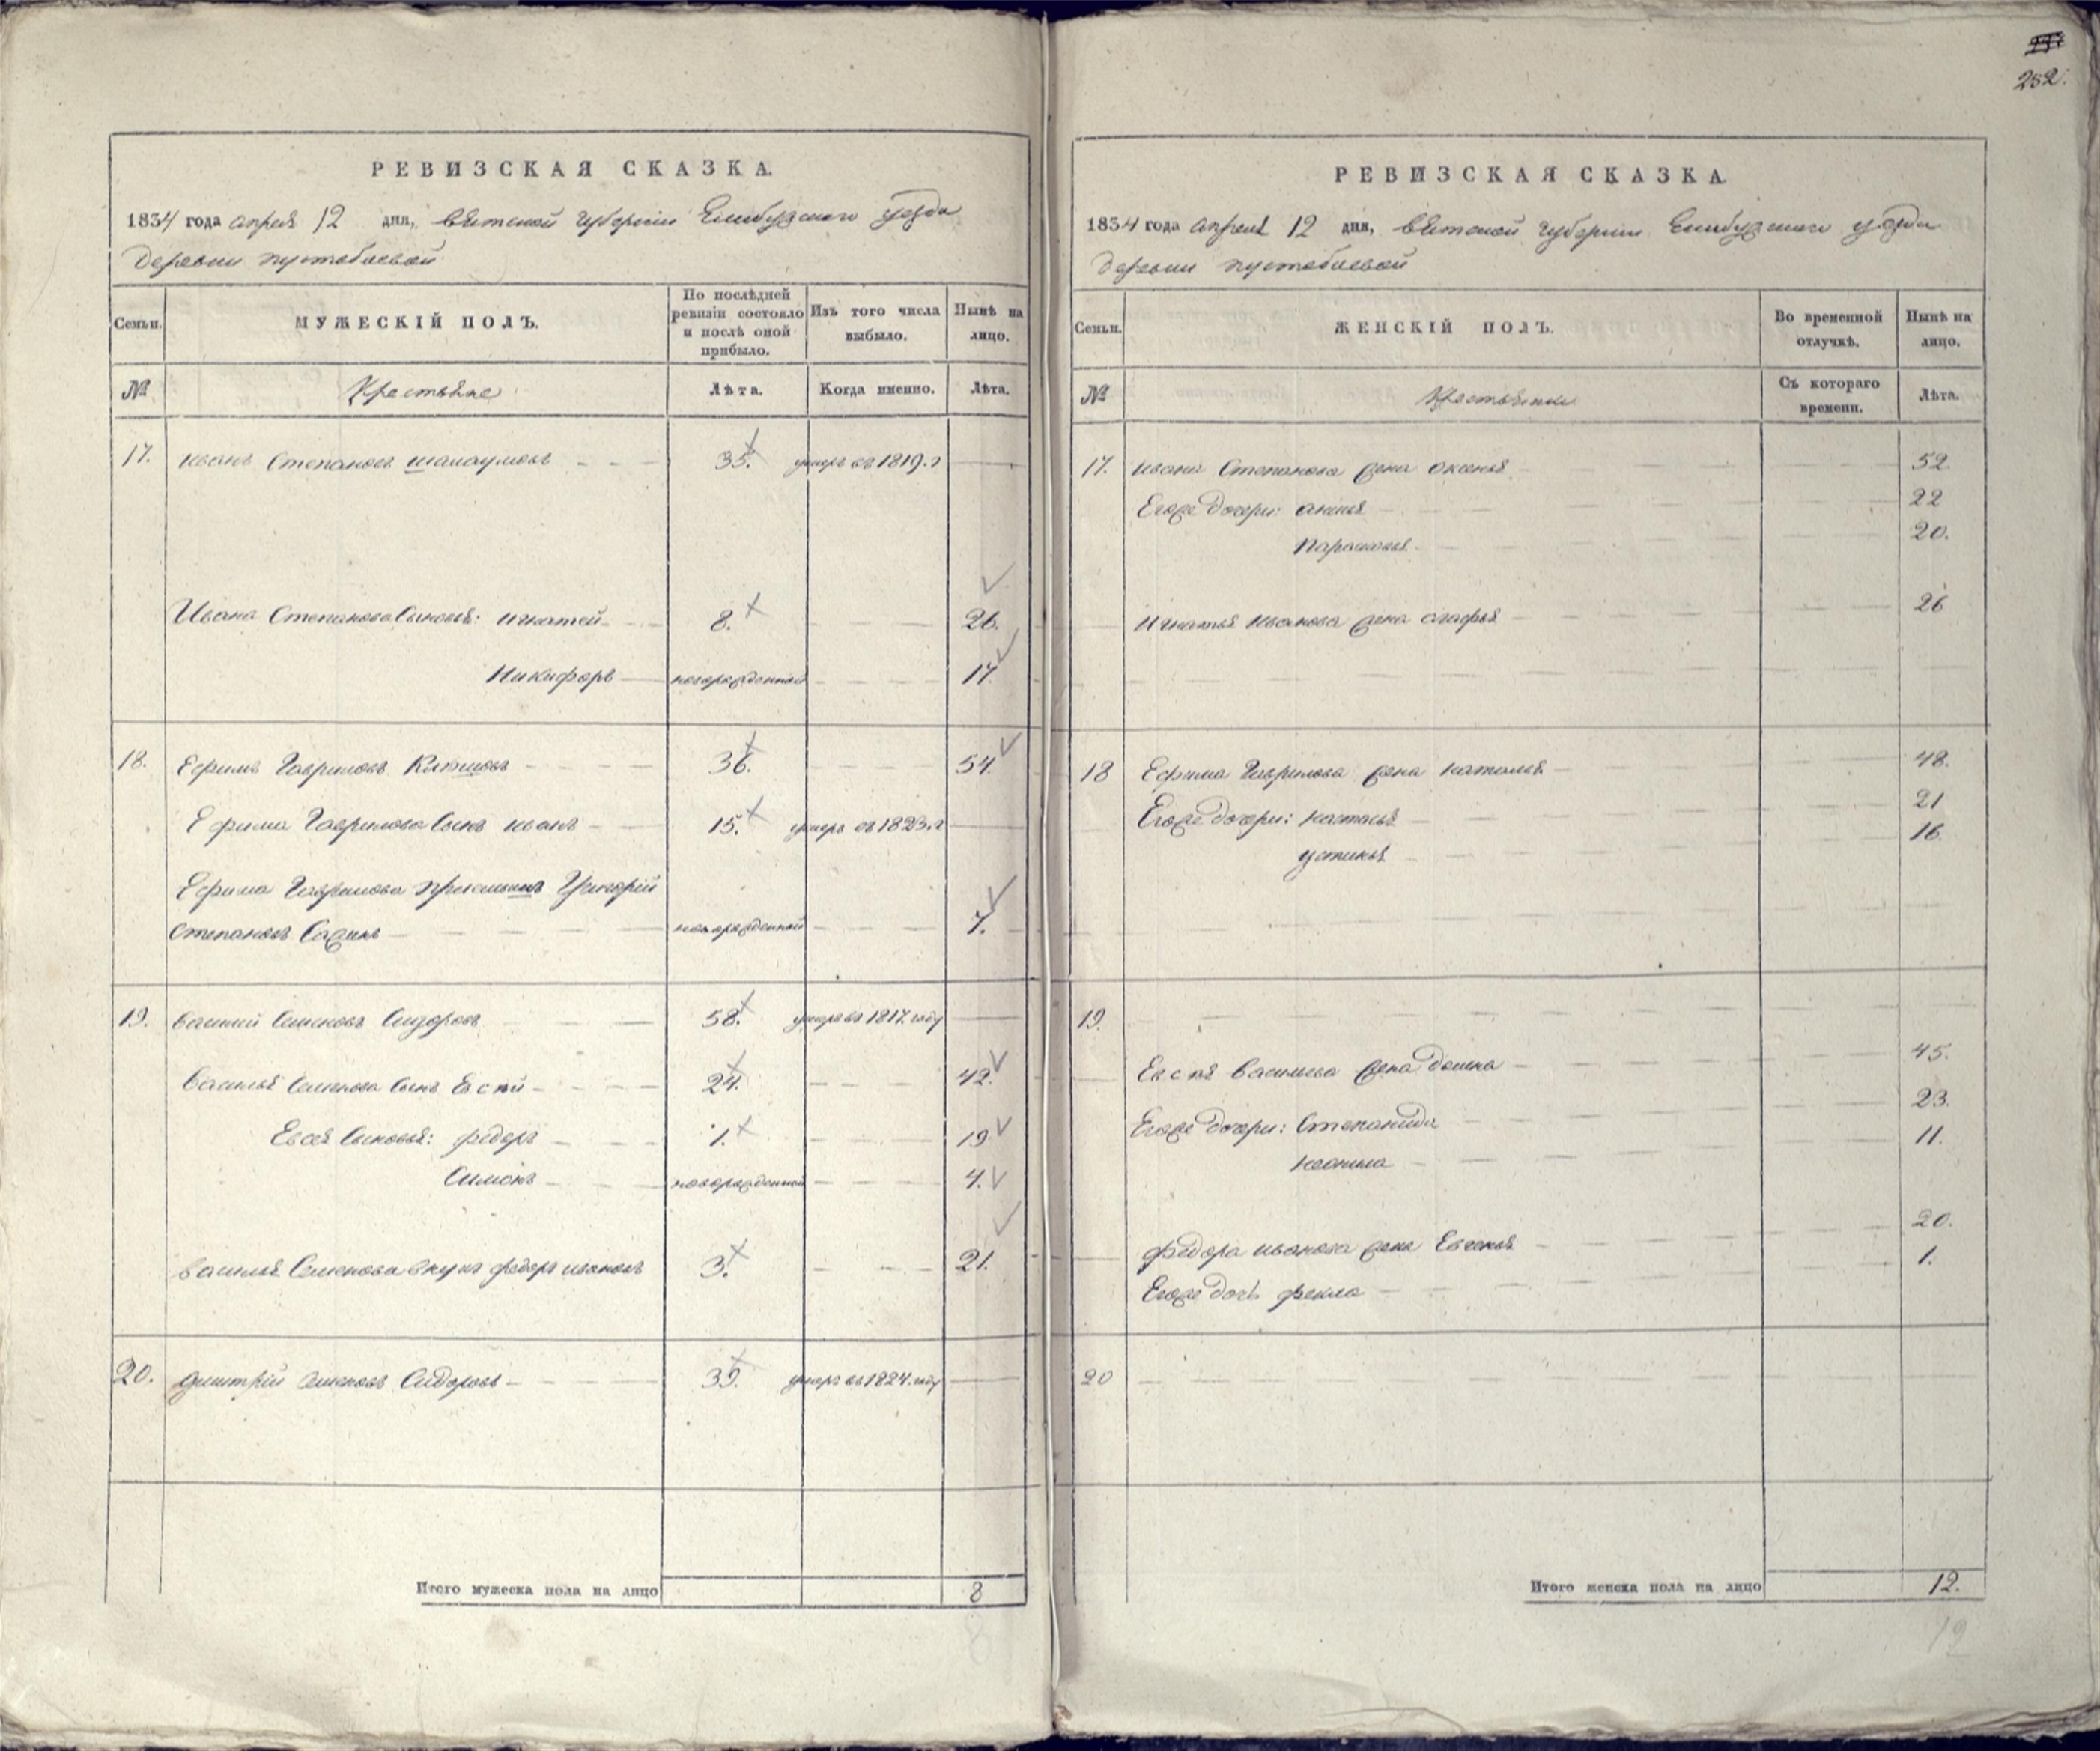 252.
РЕВИЗСКАЯ СКАЗКА.
1834 года апреля 12 дня, вятской губернии Елабужскаго уезда
деревни пустобаевой
Семьи. МУЖЕСКІЙ ПОЛЪ. По послѣдней ревизіи состояло и послѣ оной прибыло. Изъ того числа выбыло. Нынѣ на лицо.
№ Крестьяне Лѣта. Когда именно. Лѣта.
17. иванъ Степановъ 35. умеръ въ 1819. г
Ивана Степанова Сыновья: игнатей 8. 26.
Никифоръ новорожденной 17.
18. Ефимъ Гавриловъ 36. 54.
Ефима Гаврилова Сынъ иванъ 15. умеръ въ 1823. г
Ефима Гаврилова Григорій
Степановъ новорожденной 7.
19. василий Семеновъ Сидоровъ 58. умеръ въ 1817. году
Василья Семенова Сынъ Евсѣй 24. 42.
Евсея Сыновья: федоръ 1. 19
Симонъ новорожденной 4.
василья Семенова внукъ федоръ ивановъ 3. 21.
20. дмитрій Семеновъ Сидоровъ 39. умеръ въ 1824. году
Итого мужеска пола на лицо 8
8
РЕВИЗСКАЯ СКАЗКА.
1834 года апреля 12 дня, вятской губернии Елабужскаго уезда
деревни пустобаевой
Семьи. ЖЕНСКІЙ ПОЛЪ. Во временной отлучкѣ. Нынѣ на лицо.
№ Крестьянки Съ котораго времени. Лѣта.
17. ивана Степанова жена оксинья 52.
Егоже дочери: анна 22
Парасковья 20.
игнатья иванова жена агафья 26
18 Ефима Гаврилова жена наталья 48.
Егоже дочери: настасья 21
устинья 16.
19.
Евсѣя васильева жена домна 45.
Егоже дочери: Степанида 23.
11.
федора иванова жена Евгенья 20.
Егоже дочь фекла 1.
20
Итого женска пола на лицо 12.
12